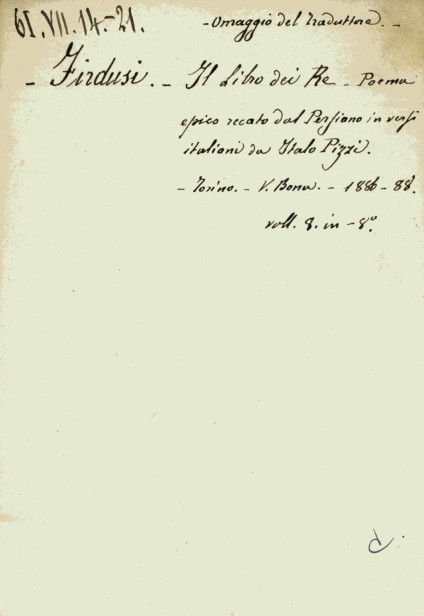 61.VII.14.-21.
- Omaggio del Traduttore. -
- Firdusi. - Il Libro dei Re - Poema
epico recato dal Persiano in versi
italiani da Italo Pizzi.
- Torino. - V. Bona. - 1886-88.
voll. 8. in-8°.